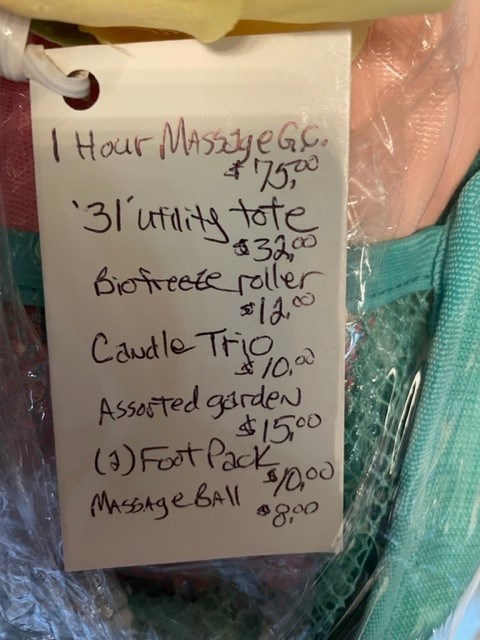 1 Hour Massage G.C.
$75.00
'31' utility tote
$32.00
Biofreeze roller
$12.00
Candle Trio
$10.00
Assorted garden
$15.00
(2) Foot Pack
$10.00
Massage Ball
$8.00